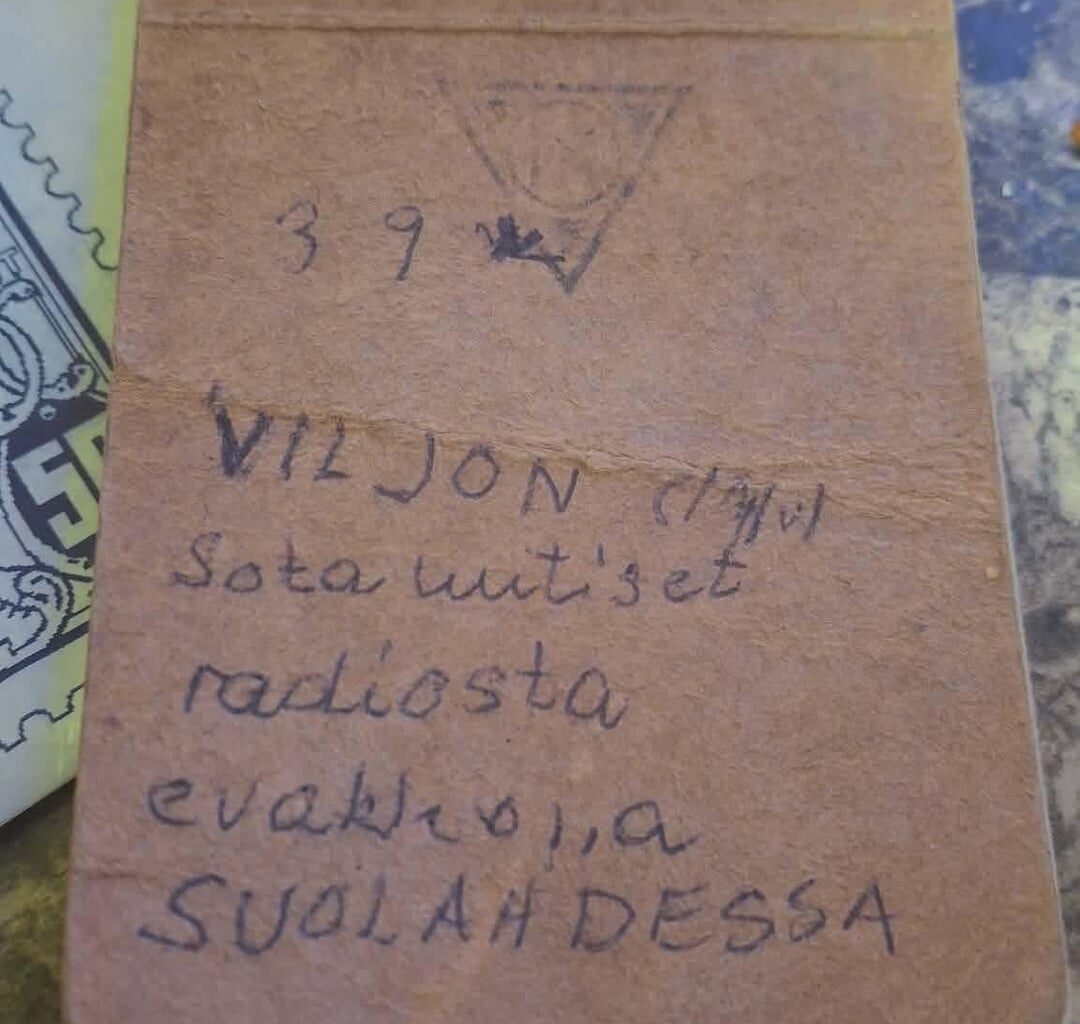 39
VILJON
Sota uutiset
radiosta
SUOLAHDESSA